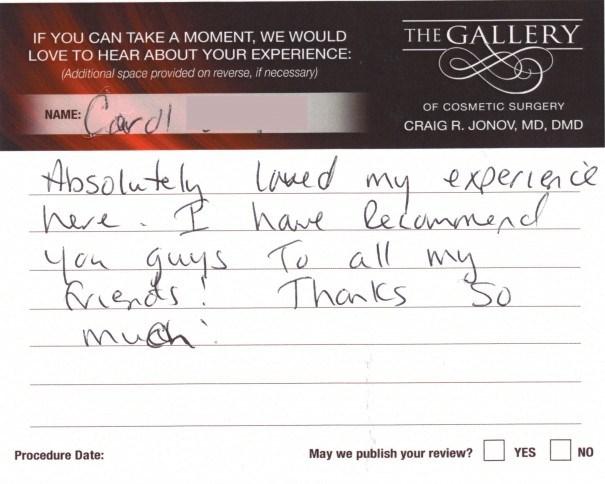 IF YOU CAN TAKE A MOMENT, WE WOULD
LOVE TO HEAR ABOUT YOUR EXPERIENCE:
(Additional space provided on reverse, if necessary)
NAME: Carol
THE GALLERY
OF COSMETIC SURGERY
CRAIG R. JONOV, MD, DMD
Absolutely loved my experience
here. I have Recommend
you guys To all my
friends! Thanks So
much!
Procedure Date:
May we publish your review? YES NO